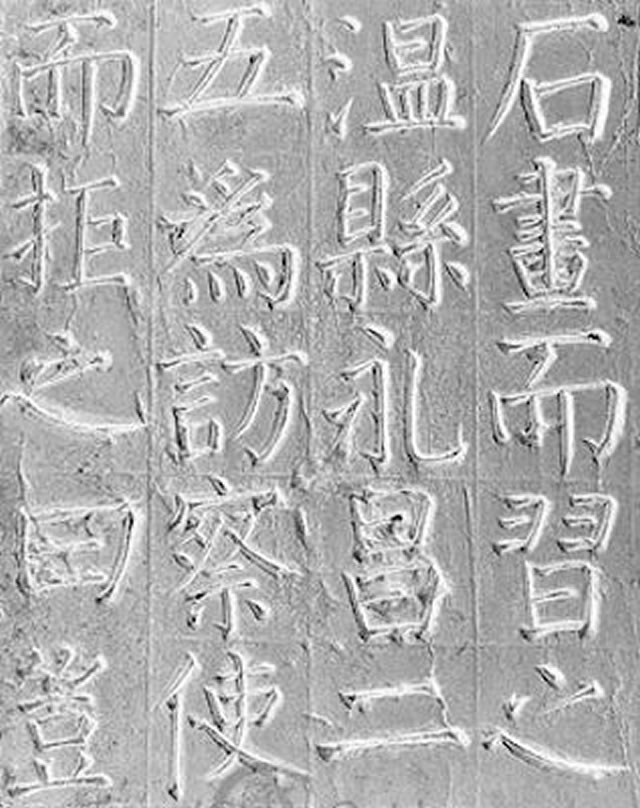 石畫而習之
温縣礼昌二
五為訪察使
而拒之曰豈